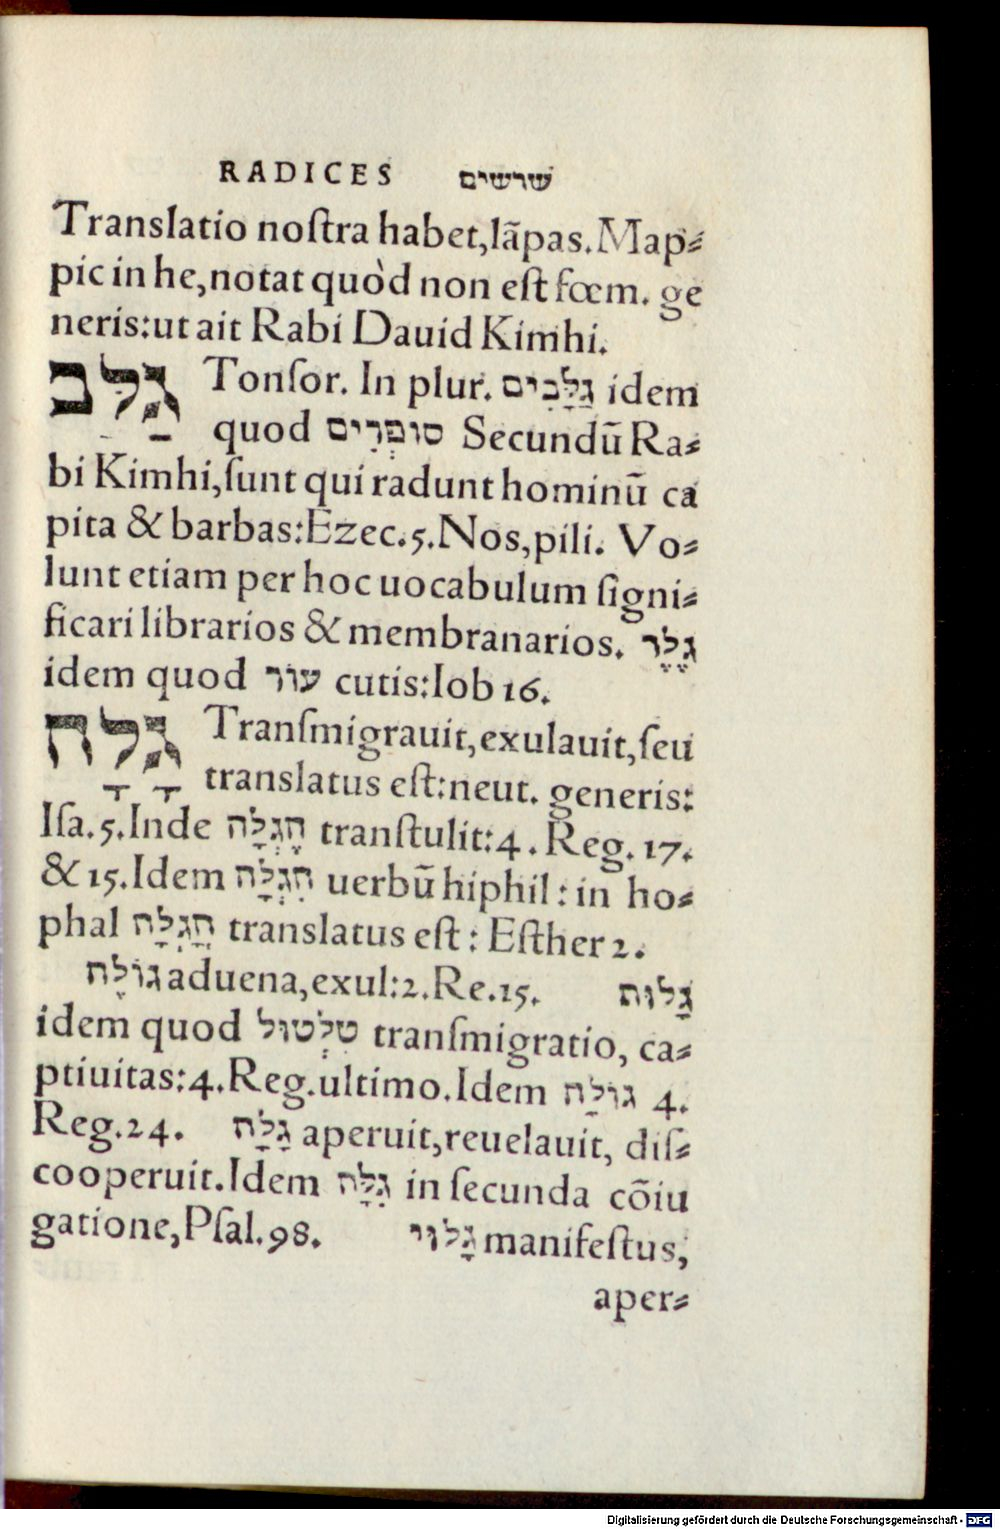 RADICES שרשים
Translatio noſtra habet,lãpas.Map⸗
pic in he,notat quòd non eſt fœm. ge
neris:ut ait Rabi Dauid Kimhi.
גַלַּב Tonſor. In plur. גַלָּבִים idem
quod סוּפְרִים Secundũ Ra⸗
bi Kimhi,ſunt qui radunt hominũ ca
pita & barbas:Ezec.5.Nos,pili. Vo⸗
lunt etiam per hoc uocabulum ſigni⸗
ficari librarios & membranarios. גֶלֶד
idem quod עור cutis:Iob 16.
גָלָה Tranſmigrauit,exulauit,ſeu
translatus eſt:neut. generis:
Iſa.5.Inde הֶגְלָה tranſtulit:4.Reg.17.
& 15.Idem הִגְלָה uerbũ hiphil: in ho⸗
phal הָגְלָה translatus eſt: Eſther 2.
גולֶה aduena,exul:2.Re.15. גָלוּת
idem quod טִלְטוּל tranſmigratio, ca⸗
ptiuitas:4.Reg.ultimo.Idem גולַה 4.
Reg.24. גָלָה aperuit,reuelauit, diſ⸗
cooperuit.Idem גִלָּה in ſecunda cõiu
gatione,Pſal.98. גָלוּי manifeſtus,
aper⸗
Digitalisierung gefördert durch die Deutsche Forschungsgemeinschaft - DFG